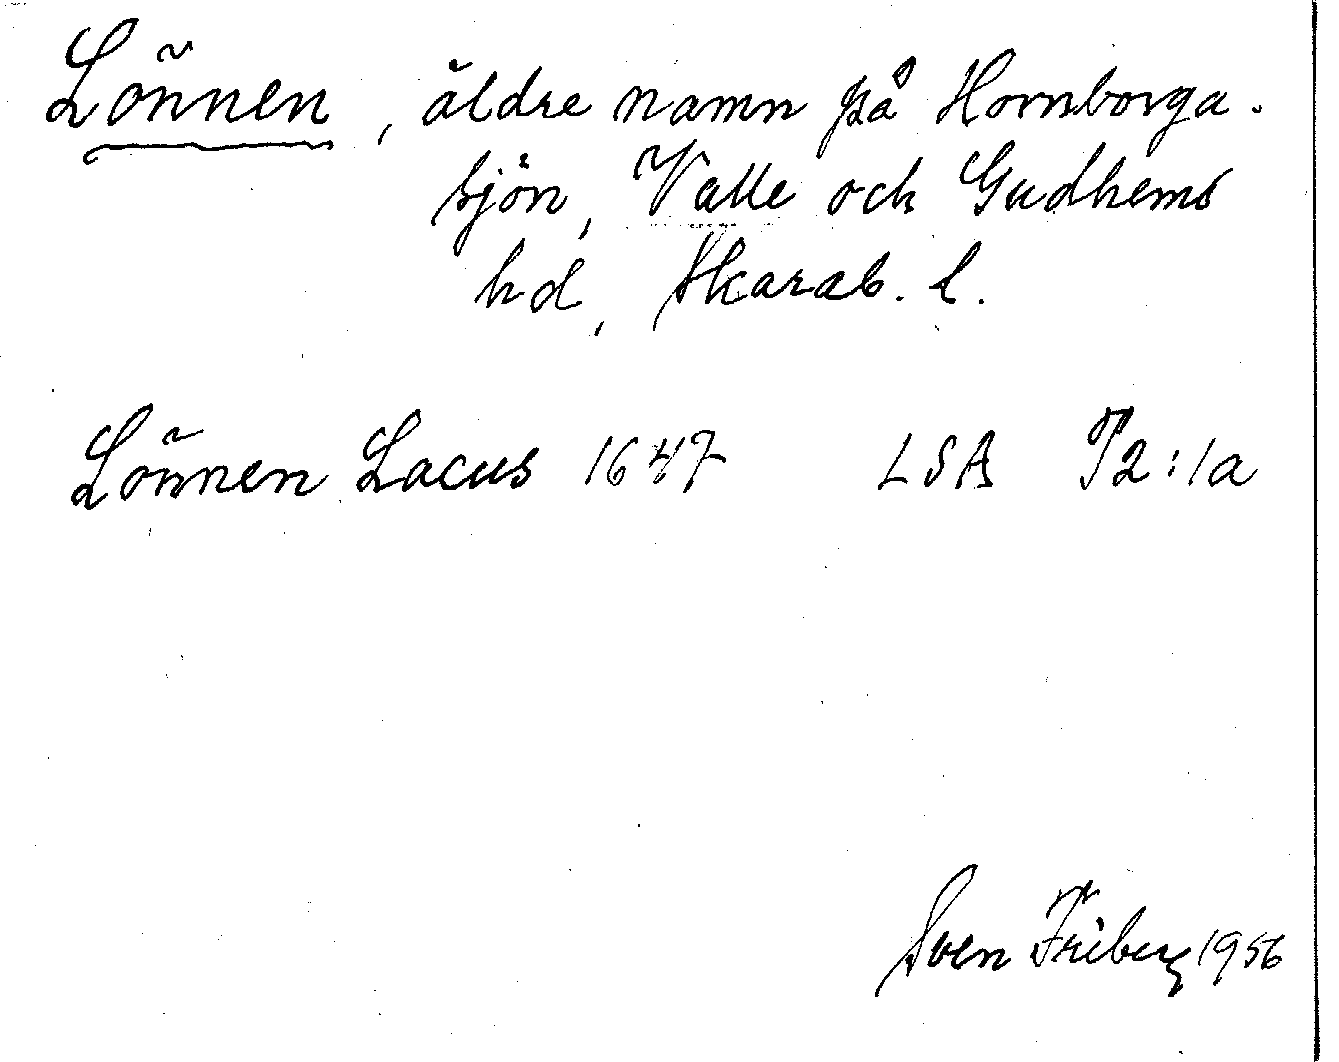 Lönnen, äldre namn på Hornborga-
sjön, Valle och Gudhems
hd, Skarab. l.
Lönnen Lacus 1647 LSA P2:1a
Sven Friberg 1956